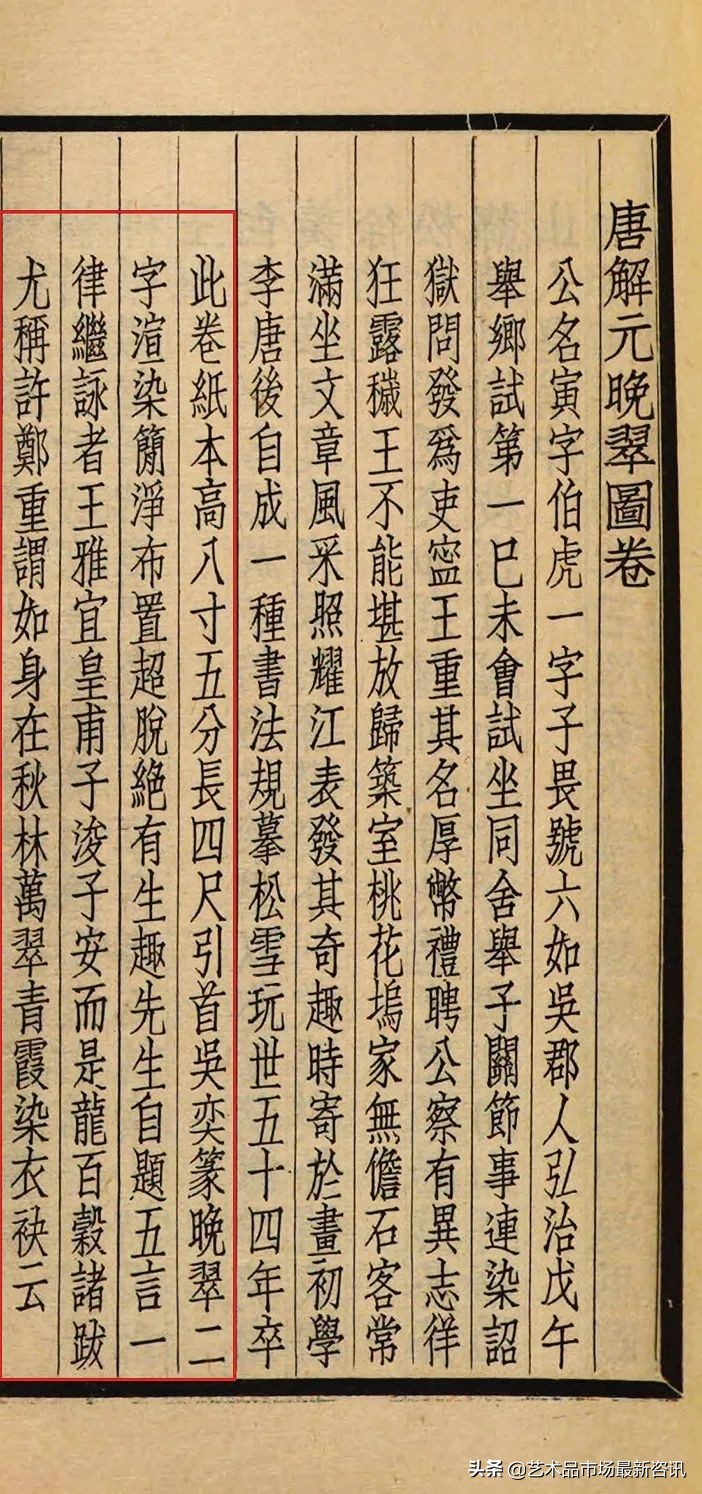 唐解元晚翠圖卷
公名寅字伯虎一字子畏號六如吳郡人弘治戊午
舉鄉試第一巳未會試坐同舍舉子關節事連染詔
獄問發爲吏寍王重其名厚幣禮聘公察有異志佯
狂露穢王不能堪放歸築室桃花塢家無儋石客常
滿坐文章風采照耀江表發其奇趣時寄於畫初學
李唐後自成一種書法規摹松雪玩世五十四年卒
此卷紙本高八寸五分長四尺引首吳奕篆晚翠二
字渲染簡淨布置超脫絕有生趣先生自題五言一
律繼詠者王雅宜皇甫子浚子安而是龍百穀諸跋
尤稱許鄭重謂如身在秋林萬翠青霞染衣袂云
头条 @艺术品市场最新咨讯